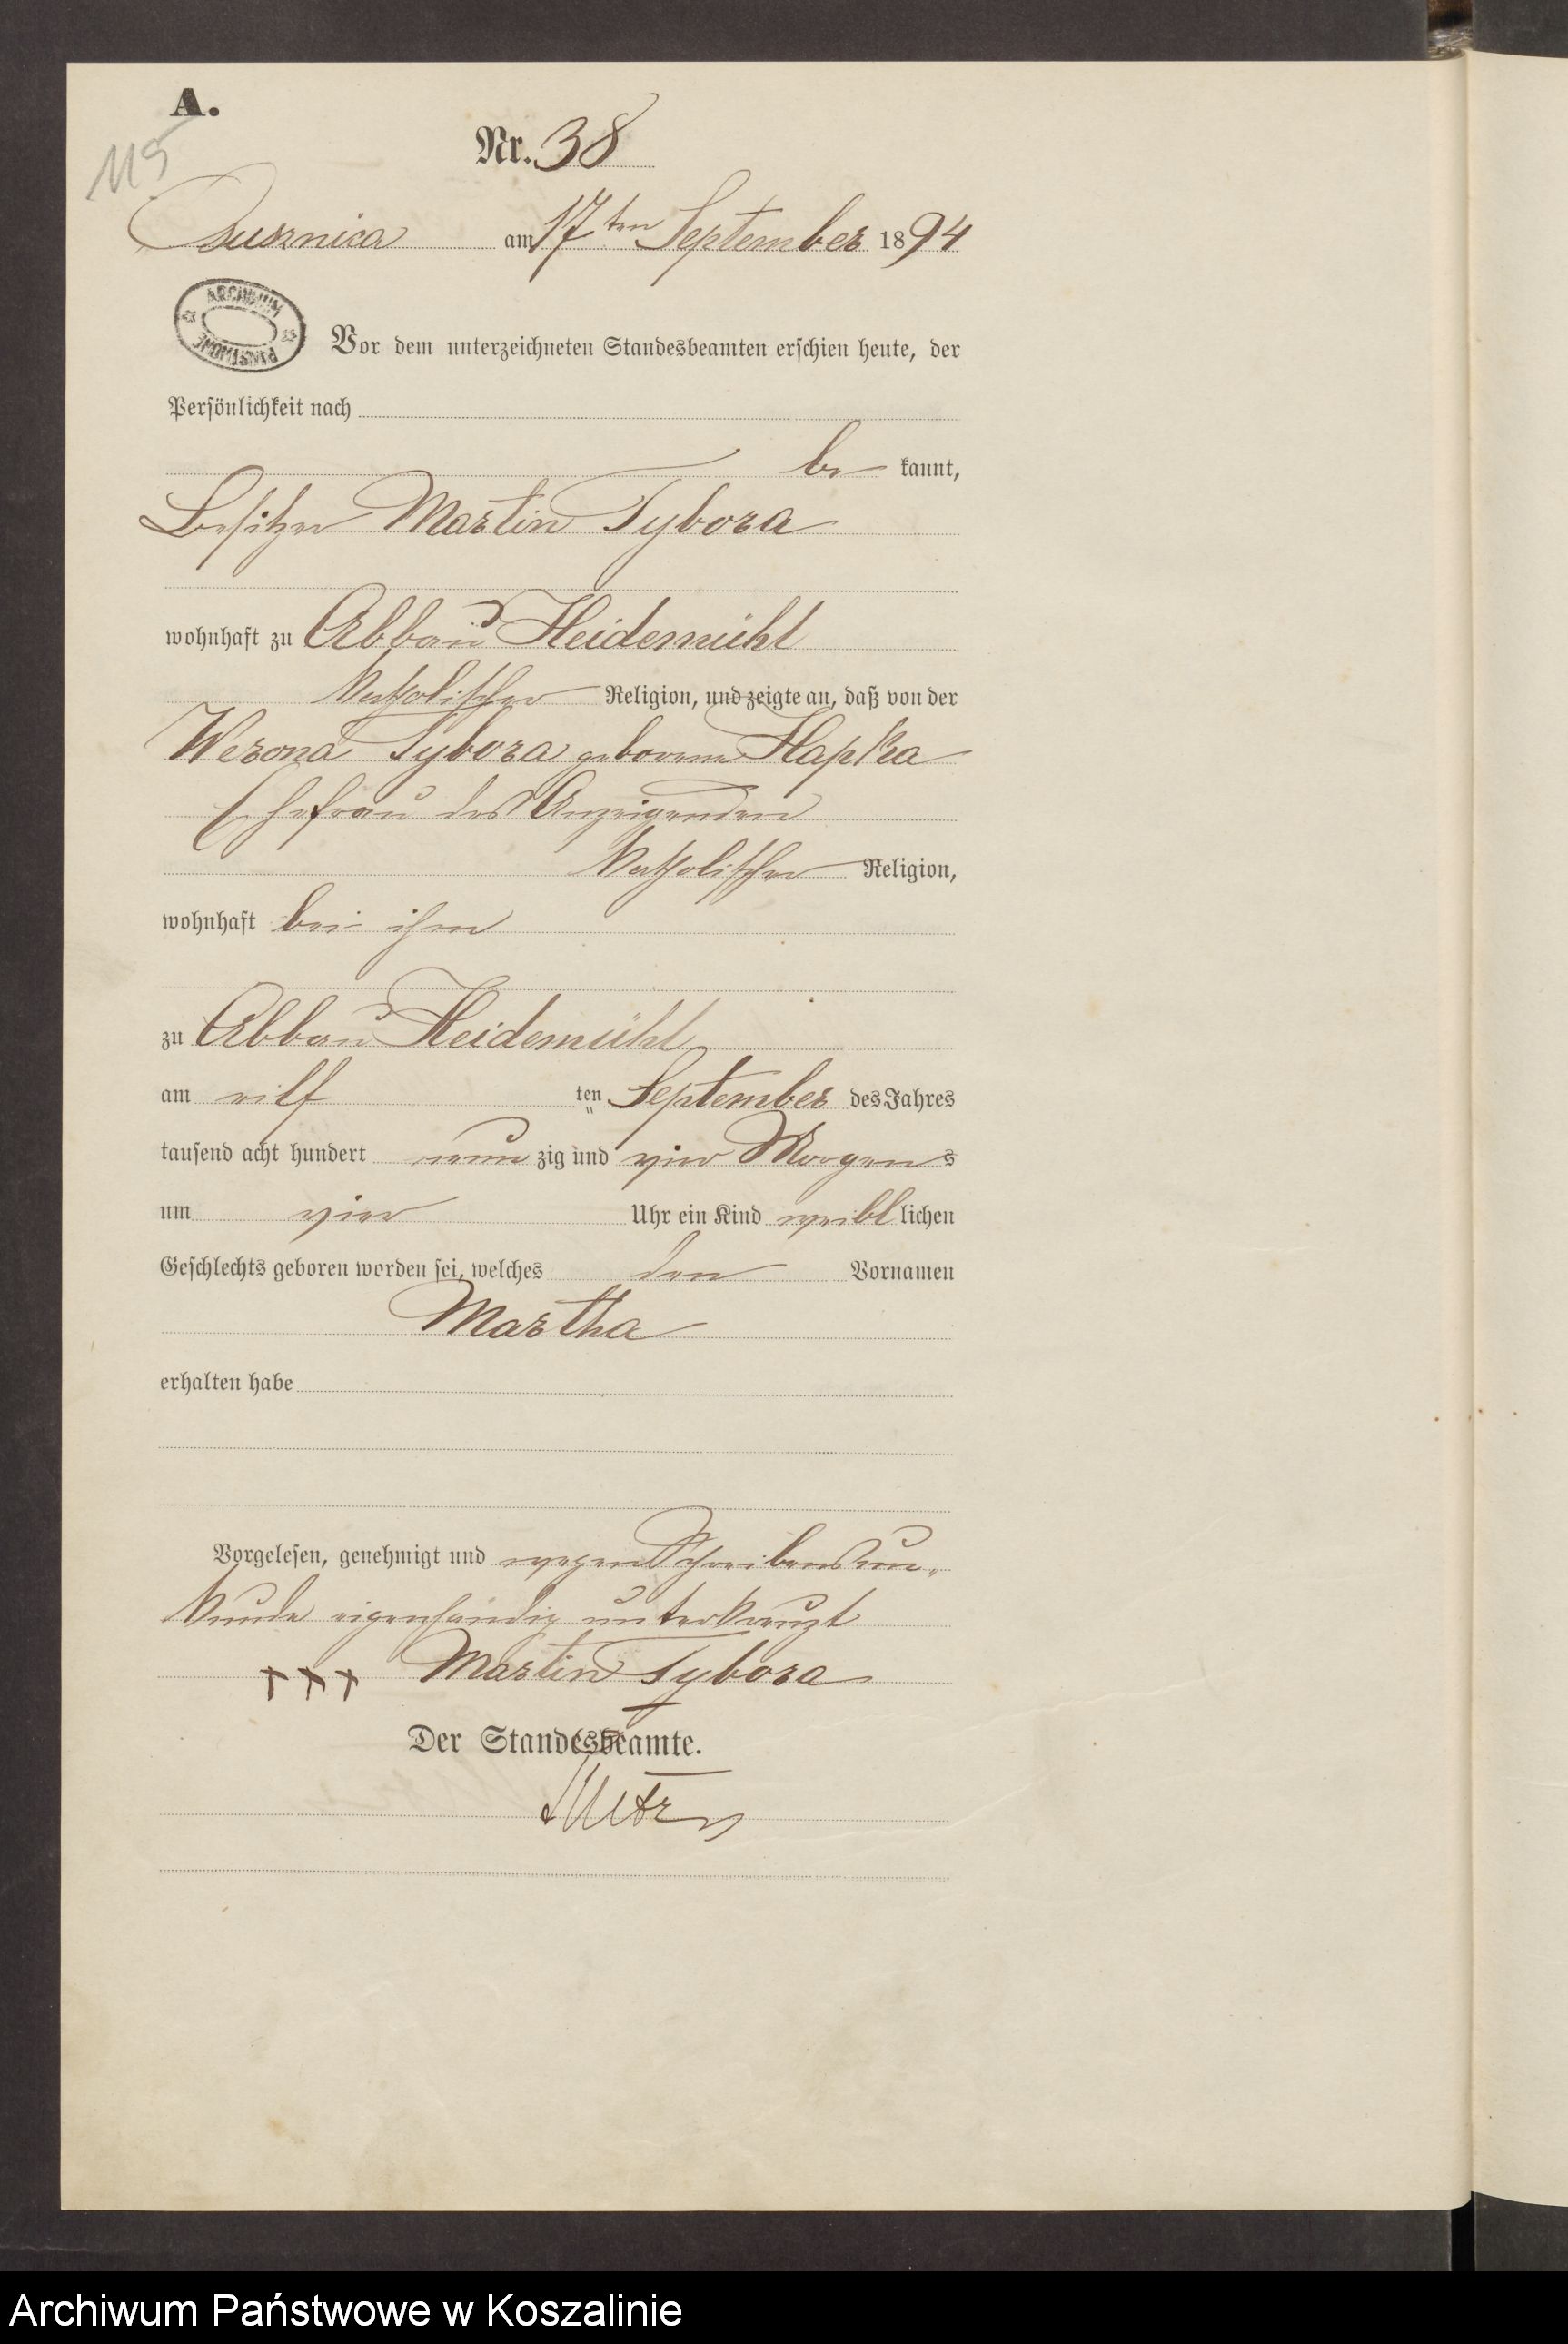 A.
115
Nr. 38
am 17ten September 1894
ARCHIWUM
PAŃSTWOWE
Vor dem unterzeichneten Standesbeamten erschien heute, der
Persönlichkeit nach
be kannt,
Besitzer Martin Tybora
wohnhaft zu Abbau Heidemühl
katholischer Religion, und zeigte an, daß von der
Werona Tybora geborene Hapka
Ehefrau des Anzeigenden
katholischer Religion,
wohnhaft bei ihm
zu Abbau Heidemühl
am eilf ten September des Jahres
tausend acht hundert neun zig und vier Morgens
um vier Uhr ein Kind weibl lichen
Geschlechts geboren worden sei, welches den Vornamen
Martha
erhalten habe
Vorgelesen, genehmigt und wegen Schreibensun-
kunde eigenhändig unterkreuzt
+++ Martin Tybora
Der Standesbeamte.
Archiwum Państwowe w Koszalinie